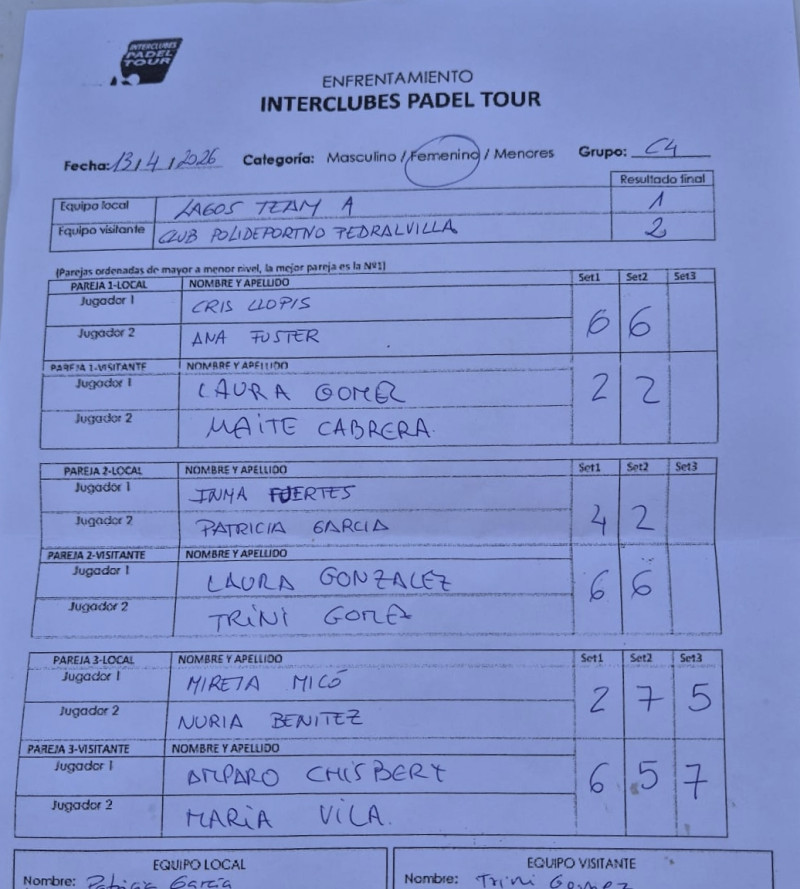 INTERCLUBES
PADEL
TOUR
ENFRENTAMIENTO
INTERCLUBES PADEL TOUR
Fecha: 13/4/2026 Categoría: Masculino / Femenino / Menores Grupo: C4
Resultado final
Equipo local LAGOS TEAM A 1
Equipo visitante CLUB POLIDEPORTIVO PEDRALVILLA 2
(Parejas ordenadas de mayor a menor nivel, la mejor pareja es la Nº1)
PAREJA 1-LOCAL NOMBRE Y APELLIDO Set1 Set2 Set3
Jugador 1 CRIS LLOPIS
Jugador 2 ANA FUSTER 6 6
PAREJA 1-VISITANTE NOMBRE Y APELLIDO
Jugador 1 LAURA GOMEZ 2 2
Jugador 2 MAITE CABRERA.
PAREJA 2-LOCAL NOMBRE Y APELLIDO Set1 Set2 Set3
Jugador 1 INMA FUERTES
Jugador 2 PATRICIA GARCIA 4 2
PAREJA 2-VISITANTE NOMBRE Y APELLIDO
Jugador 1 LAURA GONZALEZ 6 6
Jugador 2 TRINI GOMEZ
PAREJA 3-LOCAL NOMBRE Y APELLIDO Set1 Set2 Set3
Jugador 1 MIREIA MICÓ 2 7 5
Jugador 2 NURIA BENITEZ
PAREJA 3-VISITANTE NOMBRE Y APELLIDO
Jugador 1 AMPARO CHISBERT 6 5 7
Jugador 2 MARIA VILA.
EQUIPO LOCAL EQUIPO VISITANTE
Nombre: Patricia García Nombre: Trini Gomez